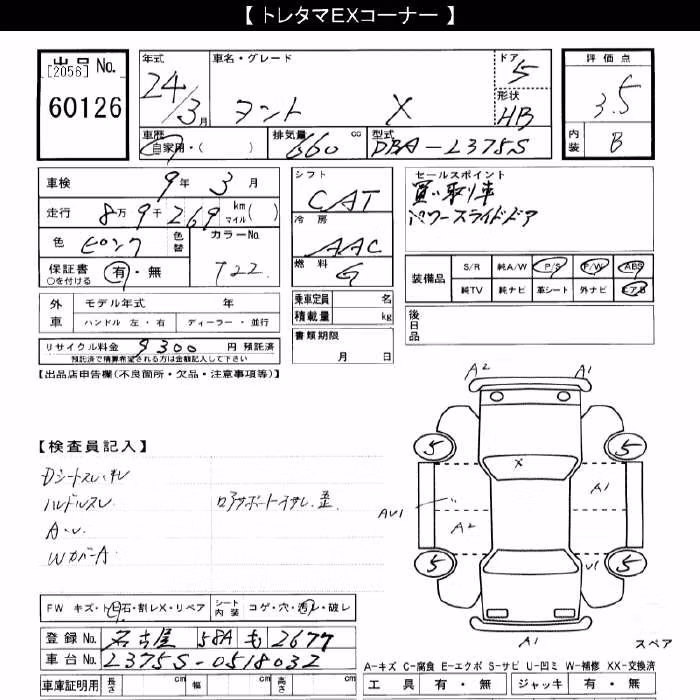 【 トレタマEXコーナー 】
出品 No. [2056] 60126
年式 24/3月 車名・グレード タント X ドア 5 形状 HB 評価点 3.5 内装 B
車歴 自家用・( ) 排気量 660 cc 型式 DBA-L375S
車検 9年 3月
走行 8万9千269 km マイル( )
色 ピンク 色替 カラーNo. T22
保証書 有・無 ○を付ける
外車 モデル年式 年
ハンドル 左・右 ディーラー・並行
リサイクル料金 9300 円 預託済
預託済で精算希望される方は金額記入して下さい
シフト CAT
冷房 AAC
燃料 G
乗車定員 名
積載量 kg
書類期限
月 日
セールスポイント
買い取り車
パワースライドドア
装備品 S/R 純A/W P/S P/W ABS
純TV 純ナビ 革シート 外ナビ エアB
後日品
【出品店申告欄(不良箇所・欠品・注意事項等)】
【検査員記入】
Dシートスレ・キレ
ハンドルスレ
A・U
Wカバー A
A2 A1
5 5
X
A1
AU1
A2
U1
5 5
A1
スペア
FW キズ・ト石・割レX・リペア シート内装 コゲ・穴・汚レ・破レ
登録 No. 名古屋 58A も 2677
車台 No. L375S-0518032
車庫証明用 長さ cm 幅 cm 高さ cm
A-キズ C-腐食 E-エクボ S-サビ U-凹ミ W-補修 XX-交換済
工具 有・無 ジャッキ 有・無